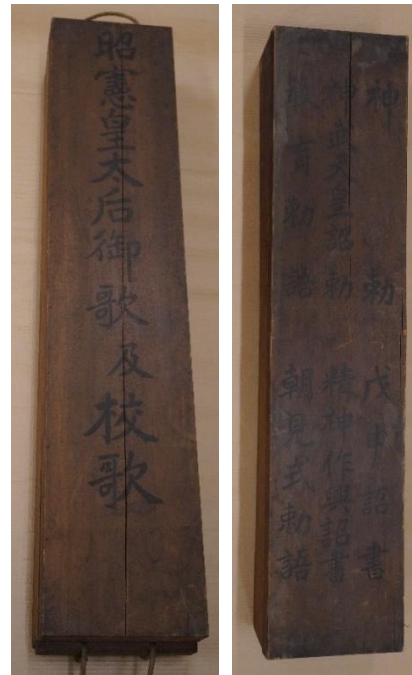 昭憲皇太后御歌及校歌
神勅
戊申詔書
神武天皇詔勅
精神作興詔書
教育勅語
朝見式勅語